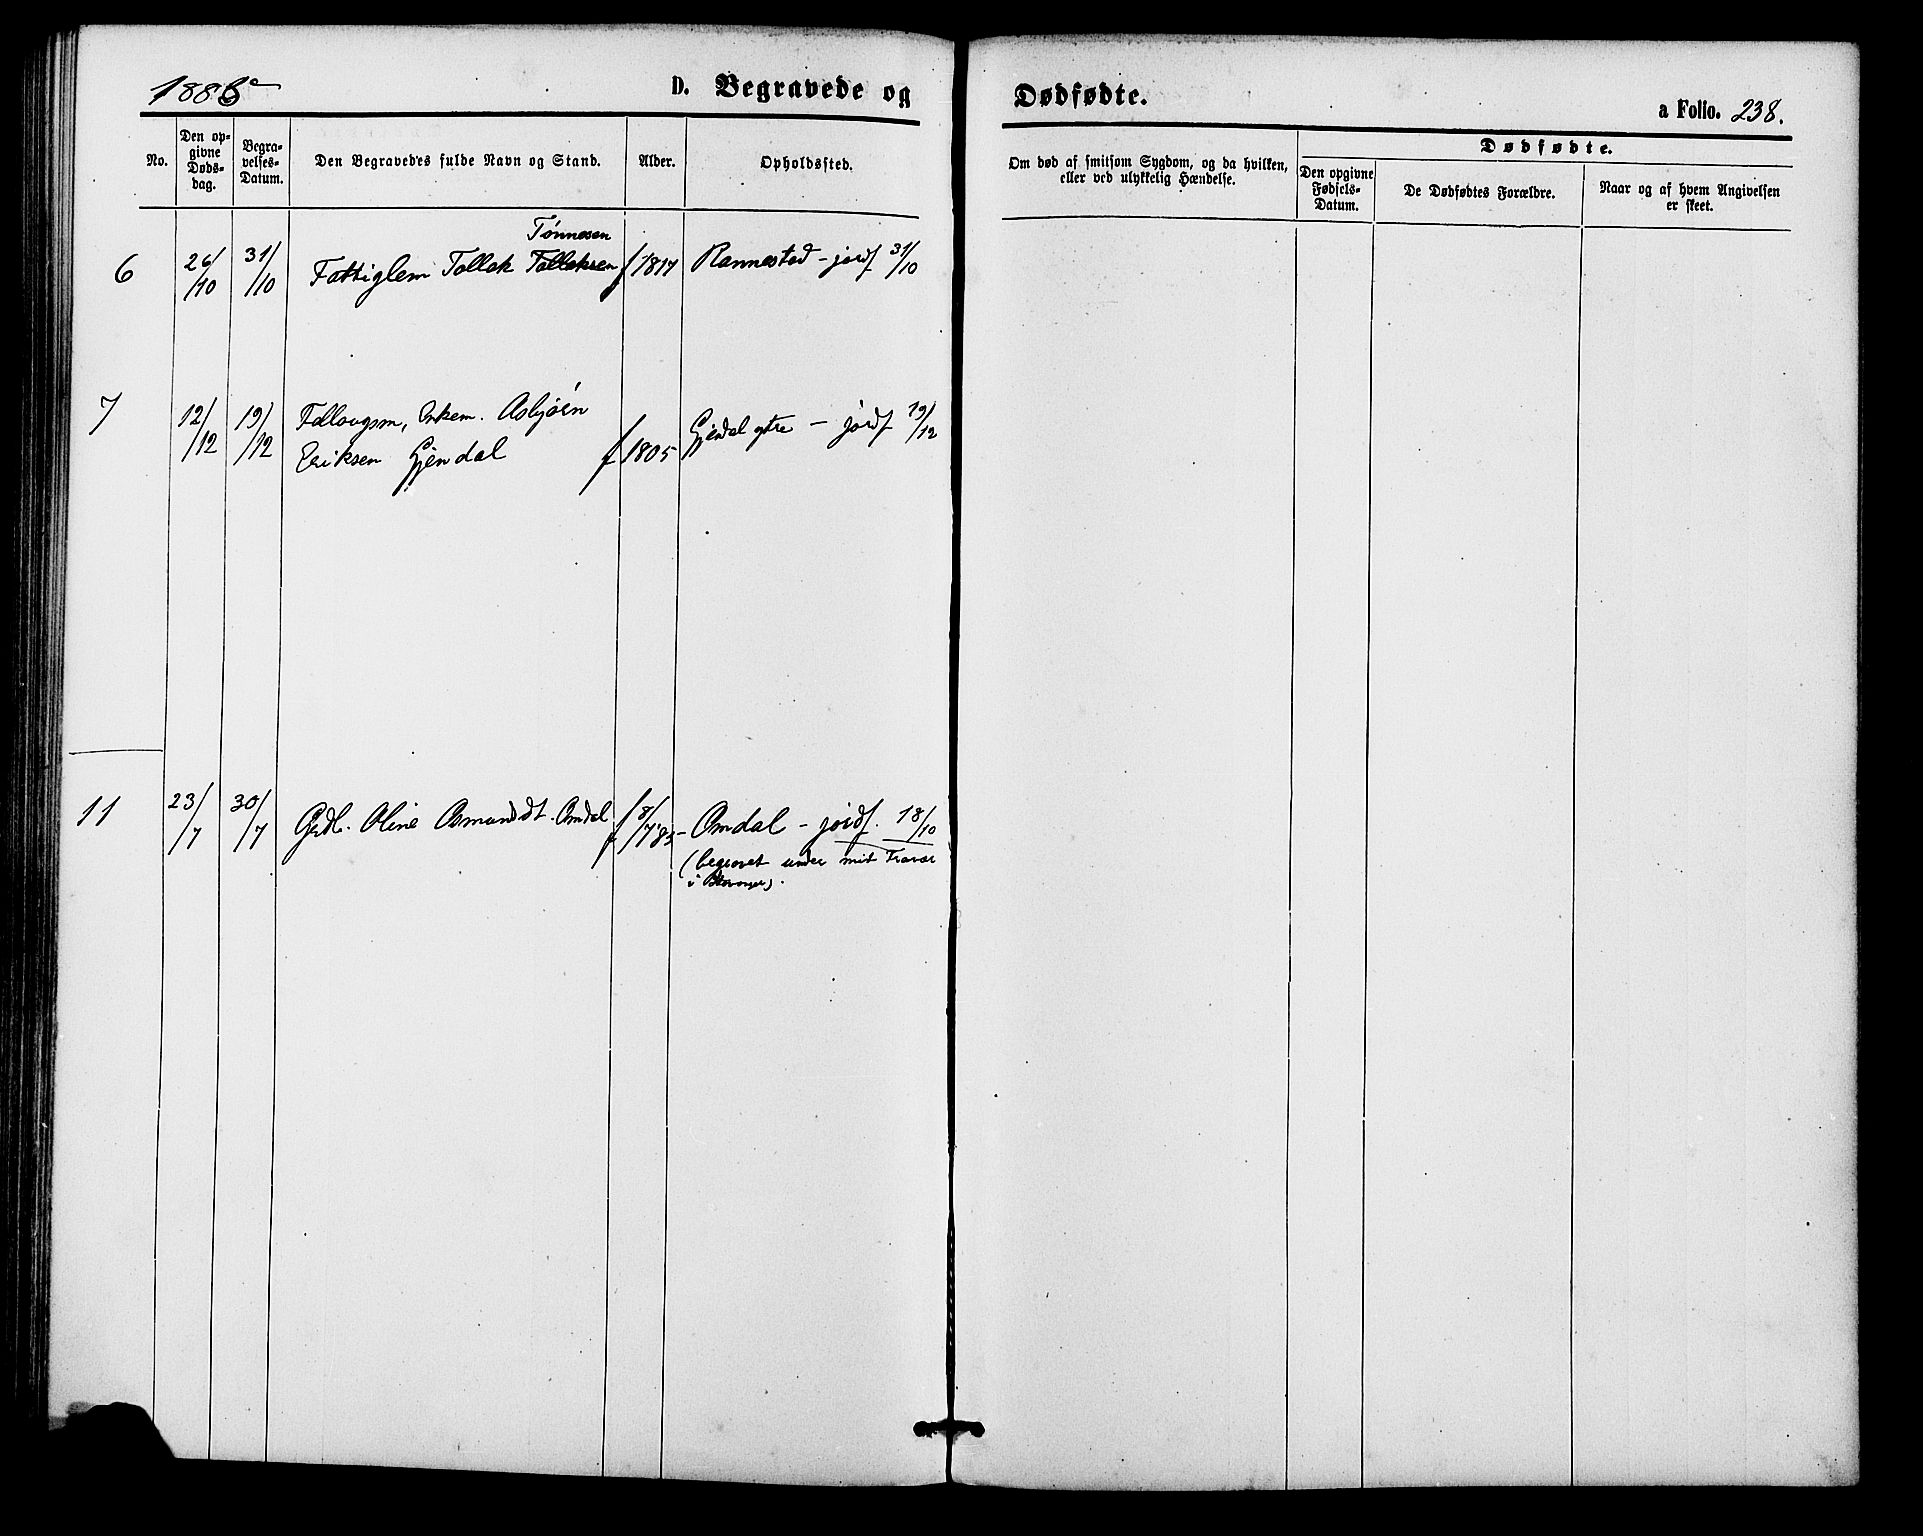 1885
D. Begravede og
Dødfødte.
a Folio. 238.
No.
Den op-
givne
Døds-
dag.
Begra-
velses-
Datum.
Den Begravedes fulde Navn og Stand.
Alder.
Opholdssted.
Om død af smitsom Sygdom, og da hvilken,
eller ved ulykkelig Hændelse.
Dødfødte.
Den opgivne
Fødsels-
Datum.
De Dødfødtes Forældre.
Naar og af hvem Angivelsen
er skeet.
Tönnesen
6 26/10 31/10 Fattiglem Tollak Tollaksen f 1817 Rannestad - jordf 31/10
7 12/12 19/12 Enkem. Asbjörn
Eriksen Gjendal f 1805 Gjendal ytre - jordf 19/12
11 23/7 30/7 Oline Osmundsdt. Omdal f 8/7 85 - Omdal - jordf. 18/10
(begravet under mit Fravær
i Stavanger).